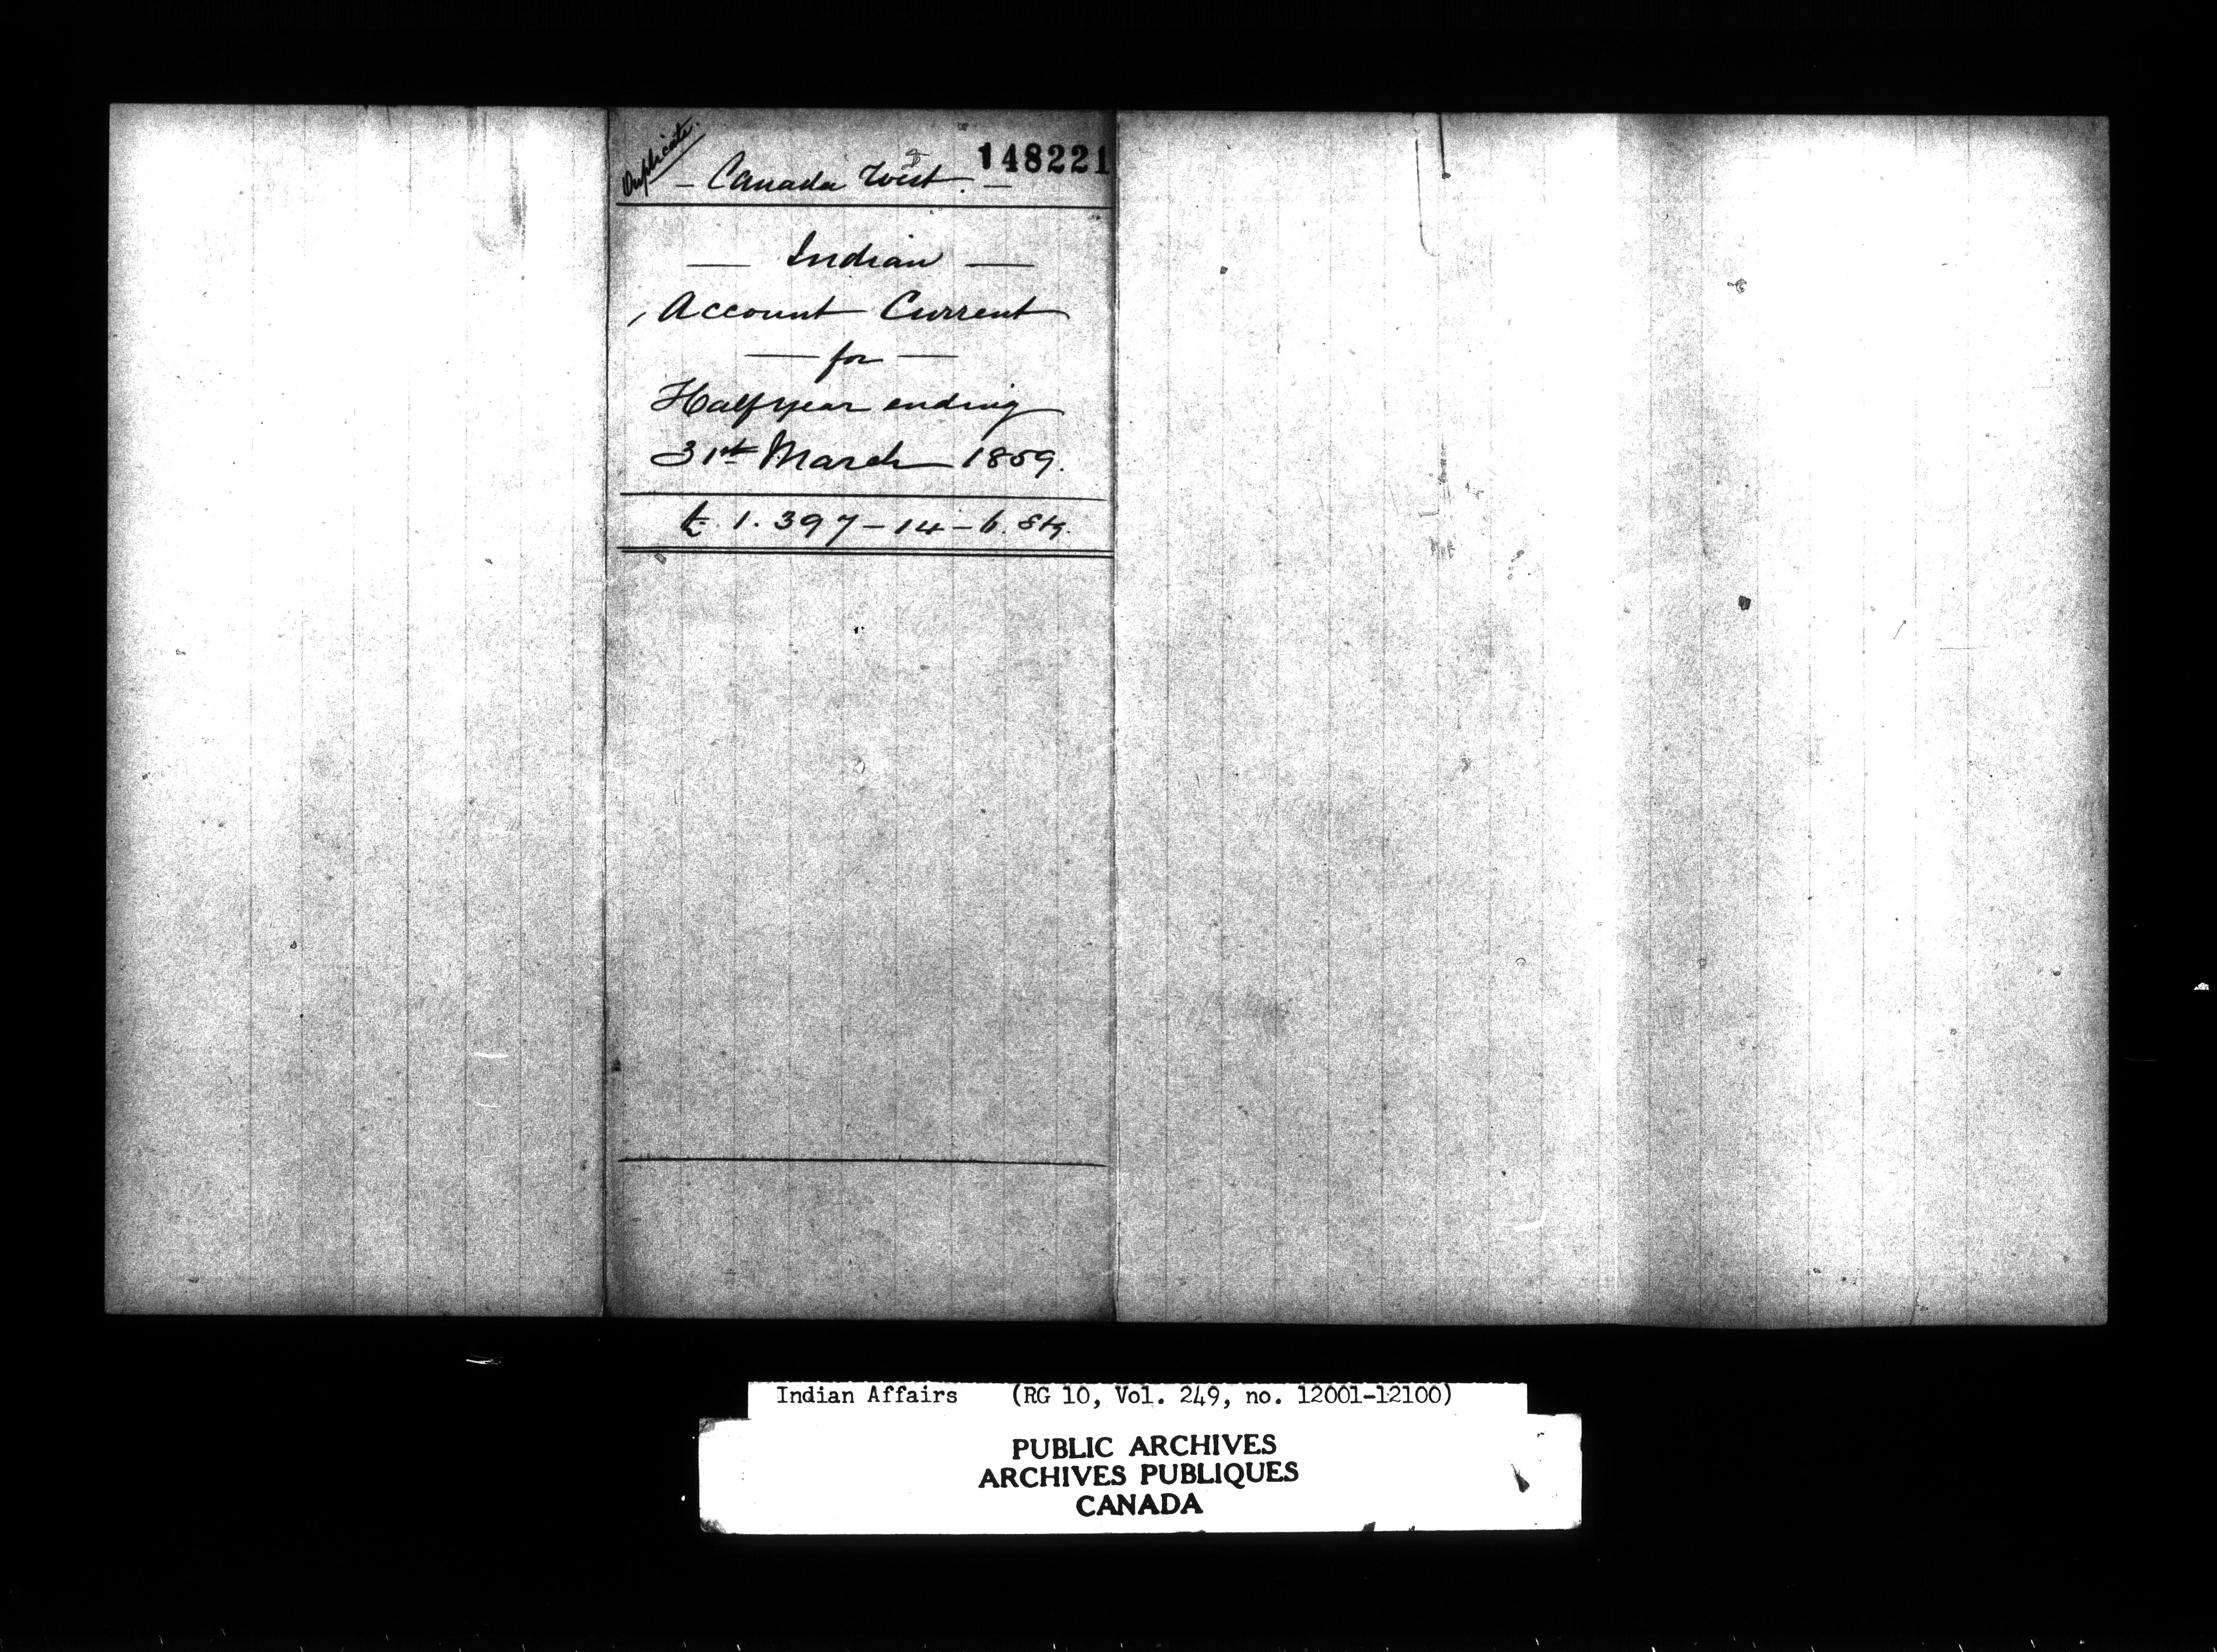 Duplicate.
148221
- Canada West. -
— Indian —
Account Current
— for —
Half year ending
31st March 1859.
£ 1.397-14-6. Stg.
Indian Affairs (RG 10, Vol. 249, no. 12001-12100)
PUBLIC ARCHIVES
ARCHIVES PUBLIQUES
CANADA